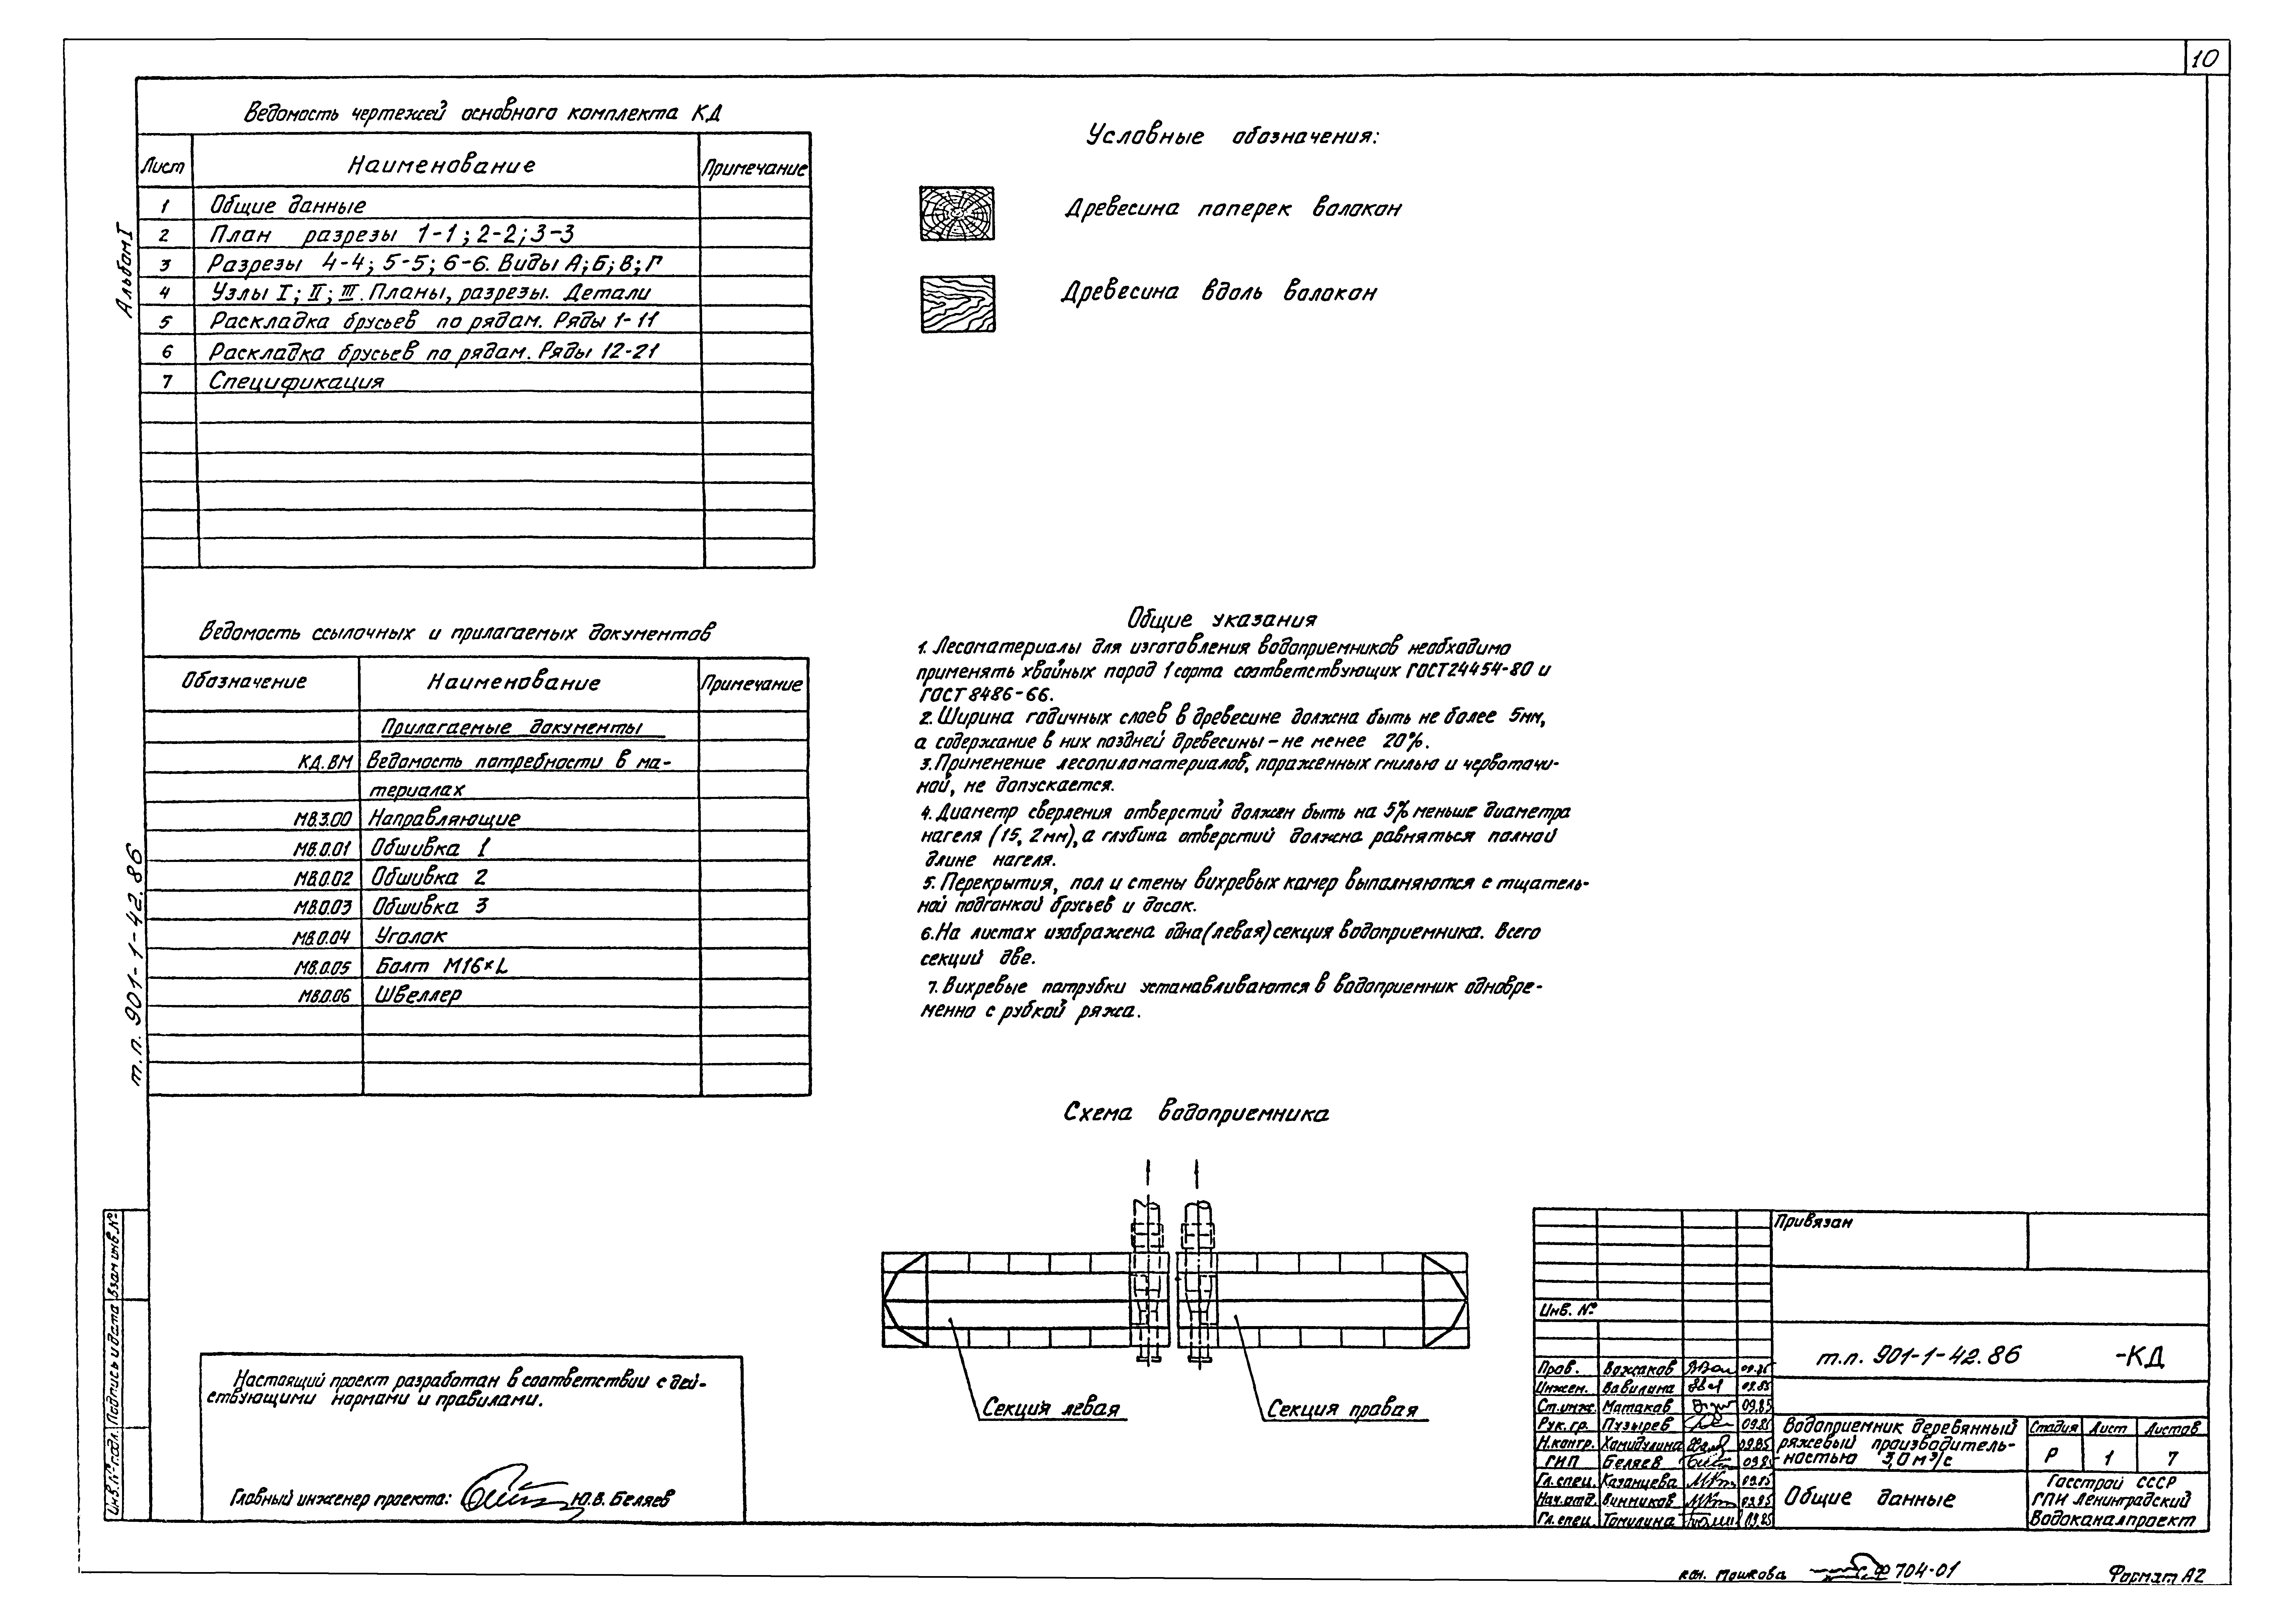 10
Альбом I
т.п. 901-1-42.86
Ведомость чертежей основного комплекта КД
Лист Наименование Примечание
1 Общие данные
2 План разрезы 1-1; 2-2; 3-3
3 Разрезы 4-4; 5-5; 6-6. Виды А; Б; В; Г
4 Узлы I; II; III. Планы, разрезы. Детали
5 Раскладка брусьев по рядам. Ряды 1-11
6 Раскладка брусьев по рядам. Ряды 12-21
7 Спецификация
Ведомость ссылочных и прилагаемых документов
Обозначение Наименование Примечание
Прилагаемые документы
КД.ВМ Ведомость потребности в ма-
териалах
МВ.3.00 Направляющие
МВ.0.01 Обшивка 1
МВ.0.02 Обшивка 2
МВ.0.03 Обшивка 3
МВ.0.04 Уголок
МВ.0.05 Болт М16×L
МВ.0.06 Швеллер
Условные обозначения:
Древесина поперек волокон
Древесина вдоль волокон
Общие указания
1. Лесоматериалы для изготовления водоприемников необходимо
применять хвойных пород 1 сорта соответствующих ГОСТ 24454-80 и
ГОСТ 8486-66.
2. Ширина годичных слоев в древесине должна быть не более 5мм,
а содержание в них поздней древесины - не менее 20%.
3. Применение лесопиломатериалов, пораженных гнилью и червоточи-
ной, не допускается.
4. Диаметр сверления отверстий должен быть на 5% меньше диаметра
нагеля (15,2мм), а глубина отверстий должна равняться полной
длине нагеля.
5. Перекрытия, пол и стены вихревых камер выполняются с тщатель-
ной подгонкой брусьев и досок.
6. На листах изображена одна (левая) секция водоприемника. Всего
секций две.
7. Вихревые патрубки устанавливаются в водоприемник одновре-
менно с рубкой ряжа.
Схема водоприемника
Секция левая
Секция правая
Настоящий проект разработан в соответствии с дей-
ствующими нормами и правилами.
Главный инженер проекта: Ю.В. Беляев
Взам инв. №
Подпись и дата
Инв. № подл.
Привязан
Инв. №
т.п. 901-1-42.86 -КД
Пров. Вожаков 09.85
Инжен. Вавилина 09.85
Ст.инж. Матаков 09.85
Рук. гр. Пузырев 09.85
Н.контр. Хамидулина 09.85
ГИП Беляев 09.85
Гл. спец. Казанцева 09.85
Нач. отд. Винников 09.85
Гл. спец. Томилина 09.85
Водоприемник деревянный
ряжевый производитель-
ностью 3,0 м³/с
Стадия Лист Листов
Р 1 7
Общие данные
Госстрой СССР
ГПИ Ленинградский
Водоканалпроект
коп. Машкова
704-01
Формат А2